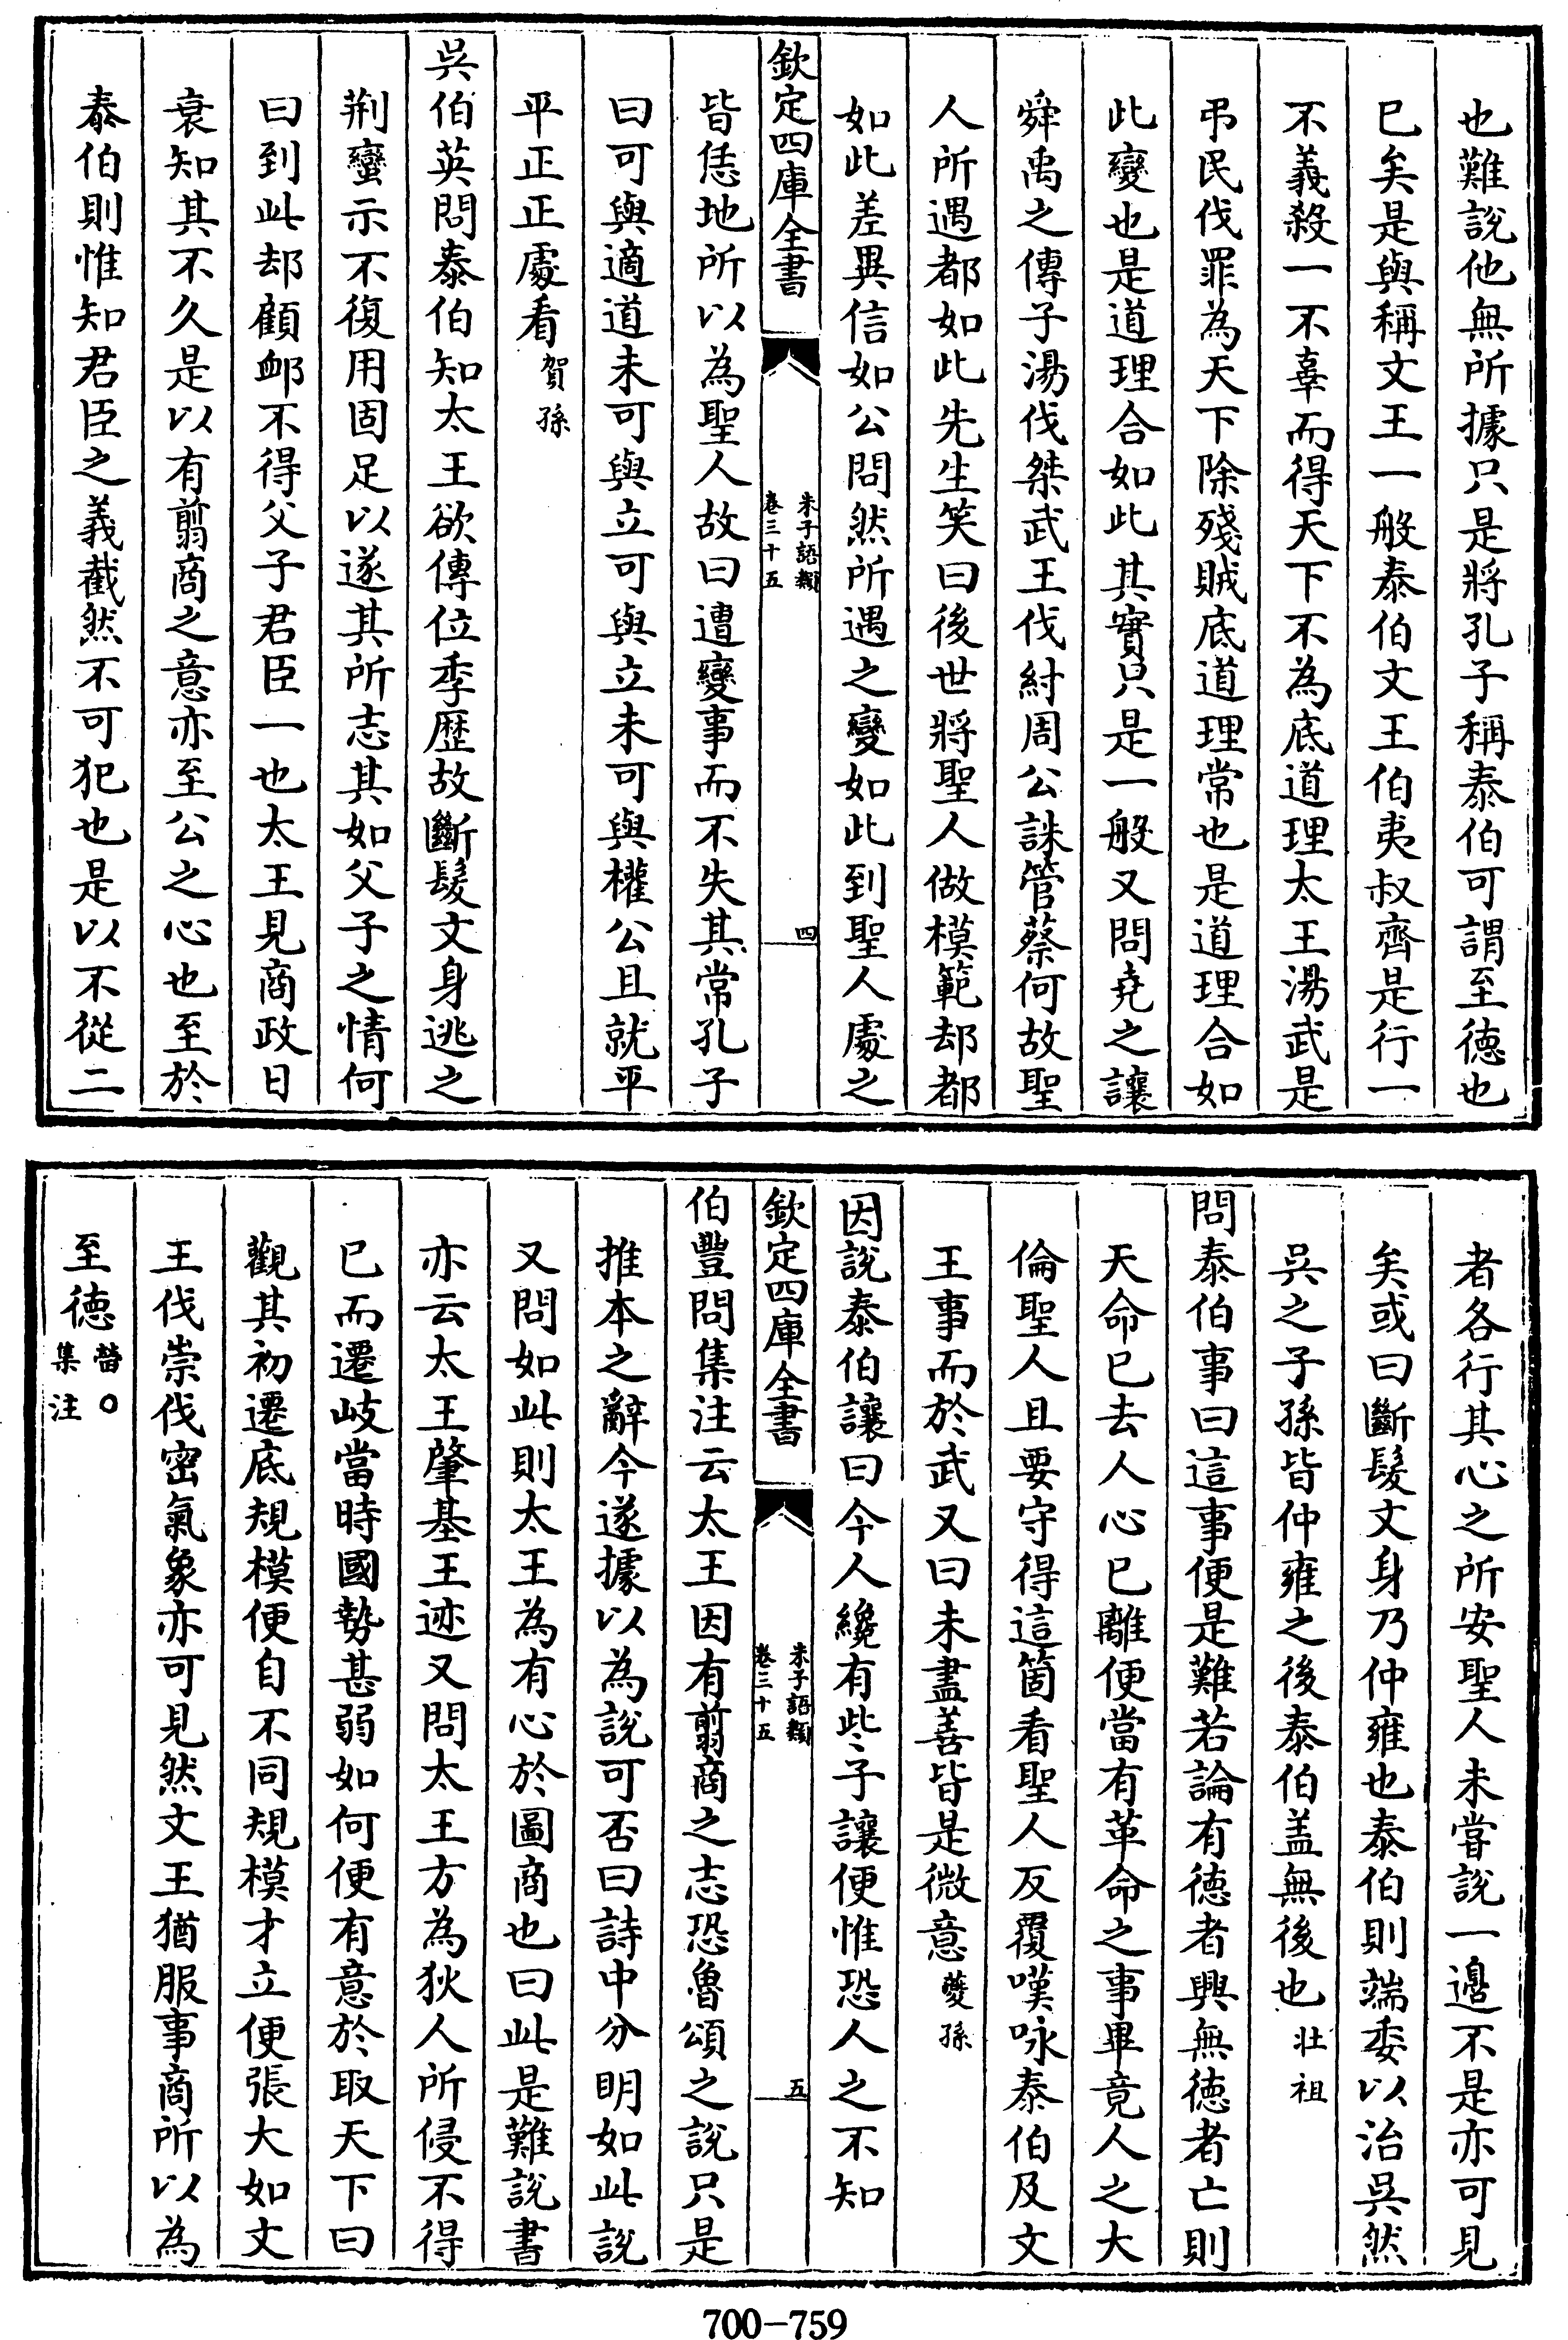 也難說他無所據只是將孔子稱泰伯可謂至徳也
已矣是與稱文王一般泰伯文王伯夷叔齊是行一
不義殺一不辜而得天下不為底道理太王湯武是
弔民伐罪為天下除殘賊底道理常也是道理合如
此變也是道理合如此其實只是一般又問堯之讓
舜禹之傳子湯伐桀武王伐紂周公誅管蔡何故聖
人所遇都如此先生笑曰後世將聖人做模範却都
如此差異信如公問然所遇之變如此到聖人處之
欽定四庫全書
朱子語類
卷三十五
四
皆恁地所以為聖人故曰遭變事而不失其常孔子
曰可與適道未可與立可與立未可與權公且就平
平正正處看賀孫
吳伯英問泰伯知太王欲傳位季歴故斷髮文身逃之
荆蠻示不復用固足以遂其所志其如父子之情何
曰到此却顧衈不得父子君臣一也太王見商政日
衰知其不久是以有翦商之意亦至公之心也至於
泰伯則惟知君臣之義截然不可犯也是以不從二
者各行其心之所安聖人未嘗說一邉不是亦可見
矣或曰斷髮文身乃仲雍也泰伯則端委以治吳然
吳之子孫皆仲雍之後泰伯盖無後也壮祖
問泰伯事曰這事便是難若論有徳者興無徳者亡則
天命已去人心已離便當有革命之事畢竟人之大
倫聖人且要守得這箇看聖人反覆嘆咏泰伯及文
王事而於武又曰未盡善皆是微意䕫孫
因說泰伯讓曰今人纔有些子讓便惟恐人之不知
欽定四庫全書
朱子語類
卷三十五
五
伯豐問集注云太王因有翦商之志恐魯頌之說只是
推本之辭今遂據以為說可否曰詩中分明如此說
又問如此則太王為有心於圖商也曰此是難說書
亦云太王肇基王迹又問太王方為狄人所侵不得
已而遷岐當時國勢甚弱如何便有意於取天下曰
觀其初遷底規模便自不同規模才立便張大如文
王伐崇伐密氣象亦可見然文王猶服事商所以為
至徳㽦○集注
700-759